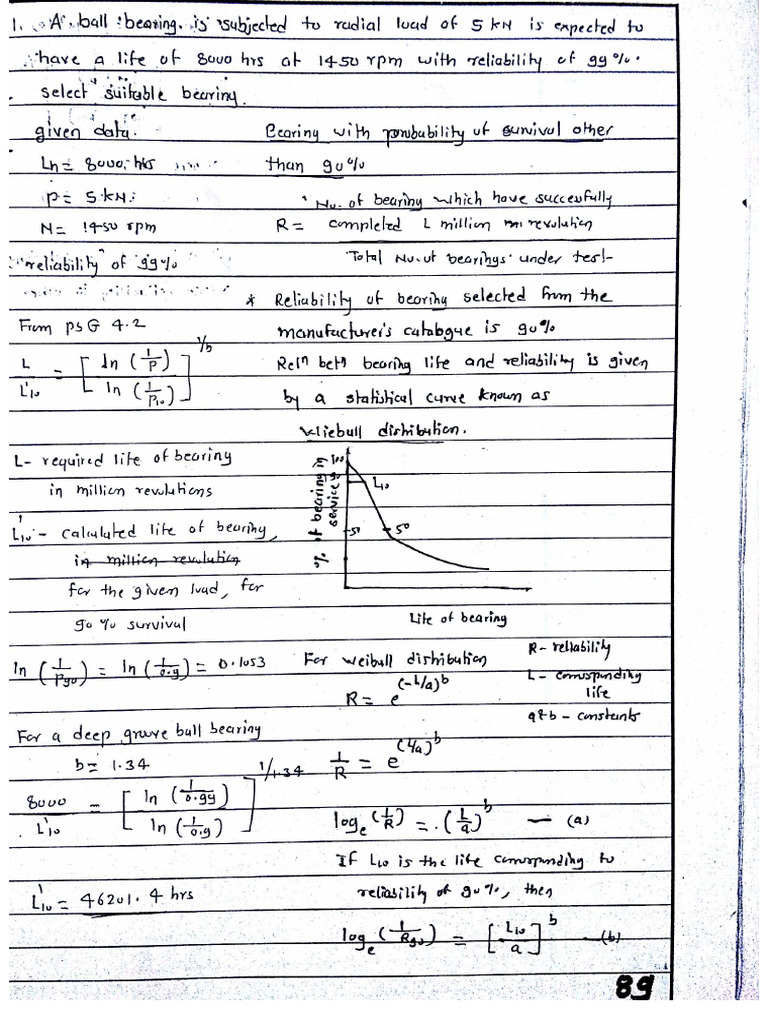 1. A ball bearing is subjected to radial load of 5 kN is expected to
have a life of 8000 hrs at 1450 rpm with reliability of 99%.
select suitable bearing.
given data.
Lh = 8000 hrs
P = 5 kN
N = 1450 rpm
reliability of 99%
From PSG 4.2
L / L'10 = [ ln (1/P) / ln (1/P10) ]^1/b
L - required life of bearing
in million revolutions
L'10 - calculated life of bearing,
in million revolution
for the given load, for
90 % survival
ln (1/P90) = ln (1/0.9) = 0.1053
For a deep groove ball bearing
b = 1.34
8000 / L'10 = [ ln (1/0.99) / ln (1/0.9) ]^1/1.34
L'10 = 46201.4 hrs
Bearing with probability of survival other
than 90%
No. of bearing which have succesfully
R = completed L million revolution
Total No. of bearings under test
* Reliability of bearing selected from the
manufacturer's catalogue is 90%
Relⁿ betⁿ bearing life and reliability is given
by a statistical curve known as
Wiebull distribution.
% of bearing in
service
100
90
L10
50
50
Life of bearing
For weibull distribution
R = e^(-L/a)^b
R - reliability
L - corresponding
life
a & b - constants
1/R = e^(L/a)^b
log_e (1/R) = (L/a)^b — (a)
If L10 is the life corresponding to
reliability of 90%, then
log_e (1/R90) = [L10/a]^b — (b)
89